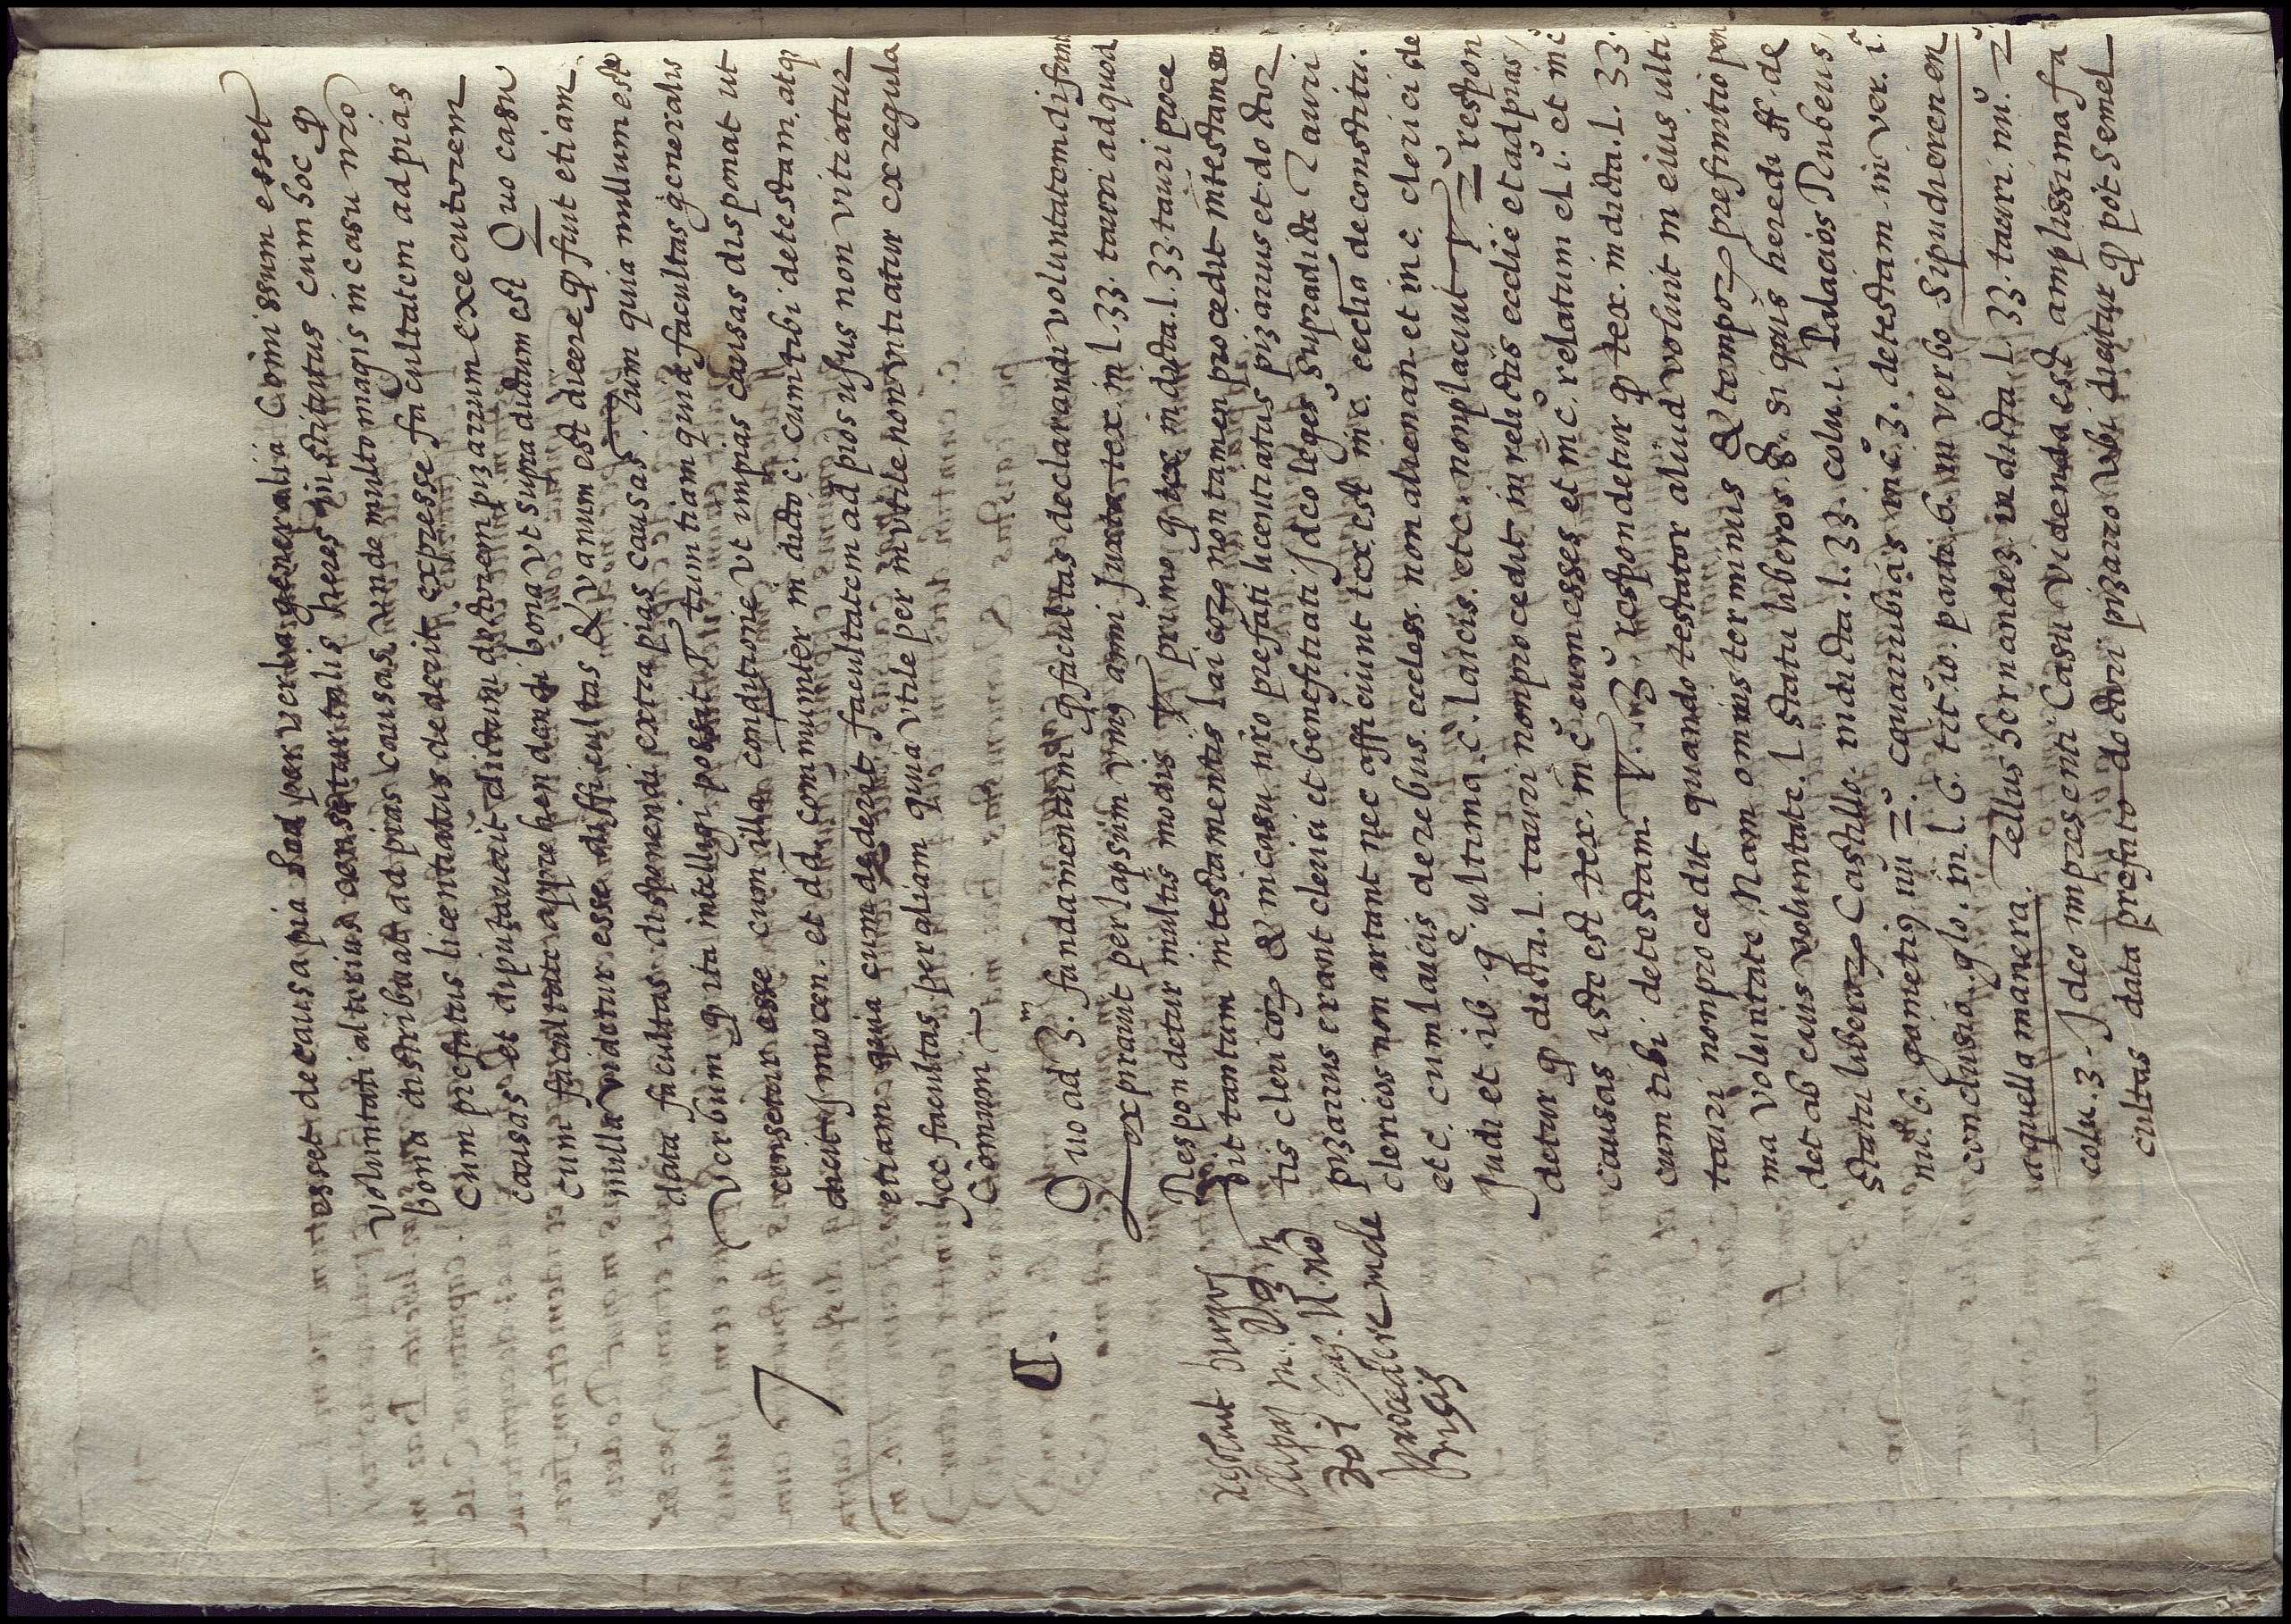 esset de causa pia per verba generalia Comissum esset
voluntati alterius censetur talis heres institutus cum hoc ꝙ
bona distribuat ad pias causas unde multo magis in casu nrõ
Cum prefatus licentiatus dederit expresse facultatem ad pias
causas et diputaverit dictum doctorem pizarrum executorem
cum facultate apprehendendi bona vt supra dictum est Quo casu
nulla videtur esse difficultas & vanum est dicere ꝙ fuit etiam
data facultas disponendi extra pias causas tum quia nullum est
Verbum ꝙ ita intelligi possit tum etiam quia facultas generalis
censetur esse cum illa conditione vt in pias causas disponat ut
dicit Innocen. et dd. communiter in dicto c. cum tibi de testam. atqȝ
etiam quia cum dederit facultatem ad pios usus non vitiatur
hec facultas per aliam quia vtile per inutile non vitiatur ex regula
Comuni
7
Quo ad 3.m fundamentum ꝙ facultas declarandi voluntatem difuncti
expiravit per lapsum unius anni Juxta tex. in l. 33. tauri ad quod
Respondetur multis modis primo ꝙ tex in dicta. l. 33. tauri proce
dit tantum in testamentis laicorȝ non tamen procedit in testamen
tis clericorȝ & in casu nrõ prefati licentiatus pizarrus et doctor
pizarrus erant clerici et benefitiati Ideo leges supradicte Tauri
clericos non artant nec afficiunt tex. est in c. ecclia de constitu.
et c. cum laicis de rebus. eccless. non alienan et in c. clerici de
Judi et ib. ultima c. laicis. et c. non placuit 2.º respon
detur ꝙ dicta. l. tauri non procedit in relictis ecclie et ad pias
causas iste est tex. in c. cum esses et in c. relatum el i. et in c
cum tibi de testam. 3.º respondetur ꝙ tex. in dicta. l. 33.
tauri non procedit quando testator aliud voluit in eius ulti
ma voluntate, Nam omnis terminus & temporȝ prefinitio pen
det ab eius voluntate. l statu liberos. §. si quis heredi ff. de
statu liberorȝ Castillo. in dicta. l. 33. colu. i. Palacios Rubeus
nu. 6. gometiꝰ nu 2.º covarrubias in c. 3. de testam. in ver. i.
conclusia. glo. in. l. 6. tit.º 10. parti. 6. in verbo si pudieren en
aquella manera. Tellus hernandez in dicta l. 33. tauri. nu. 2
colu. 3. Ideo in presenti Casu videnda est amplissima fa
cultas data prefato doctori pizarro ubi dicitur ꝙ pot semel
procedere in de